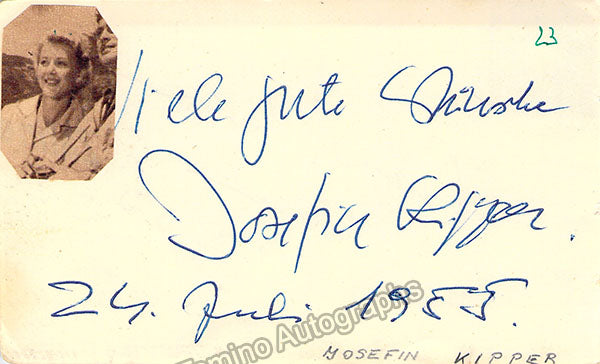 23
Viele gute Wünsche
Josefin Kipper.
24. Juli 1955.
Tamino Autographs
MOSEFIN KIPPER